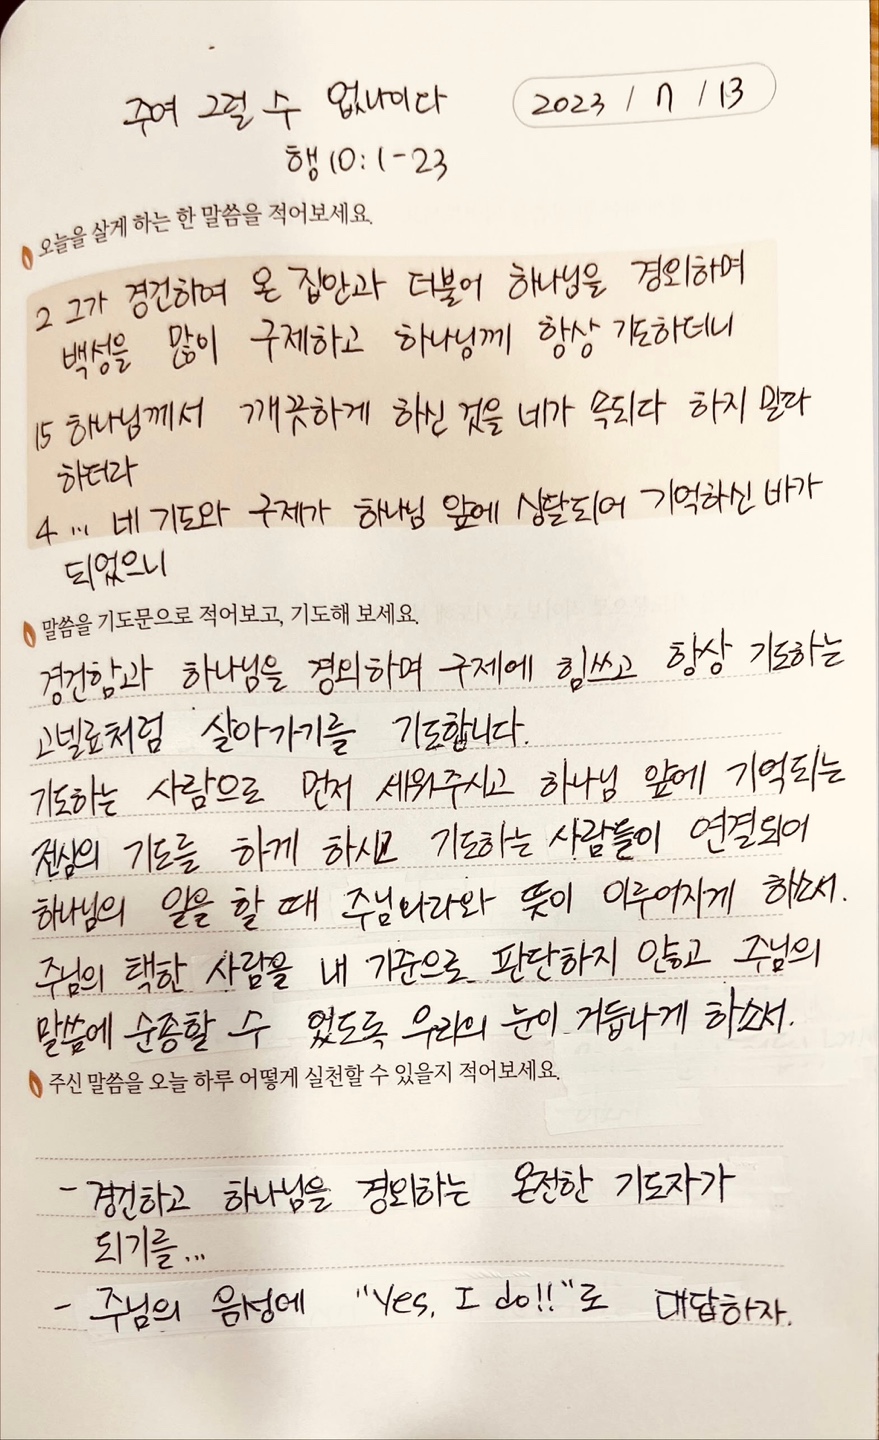 주여 그럴 수 없나이다
2023 / 7 / 13
행 10: 1-23
오늘을 살게 하는 한 말씀을 적어보세요.
2 그가 경건하여 온 집안과 더불어 하나님을 경외하며
백성을 많이 구제하고 하나님께 항상 기도하더니
15 하나님께서 깨끗하게 하신 것을 네가 속되다 하지 말라
하더라
4 ... 네 기도와 구제가 하나님 앞에 상달되어 기억하신 바가
되었으니
말씀을 기도문으로 적어보고, 기도해 보세요.
경건함과 하나님을 경외하며 구제에 힘쓰고 항상 기도하는
고넬료처럼 살아가기를 기도합니다.
기도하는 사람으로 먼저 세워주시고 하나님 앞에 기억되는
전심의 기도를 하게 하시고 기도하는 사람들이 연결되어
하나님의 일을 할 때 주님나라와 뜻이 이루어지게 하소서.
주님의 택한 사람을 내 기준으로 판단하지 않고 주님의
말씀에 순종할 수 있도록 우리의 눈이 거듭나게 하소서.
주신 말씀을 오늘 하루 어떻게 실천할 수 있을지 적어보세요.
- 경건하고 하나님을 경외하는 온전한 기도자가
되기를...
- 주님의 음성에 "Yes, I do!!"로 대답하자.